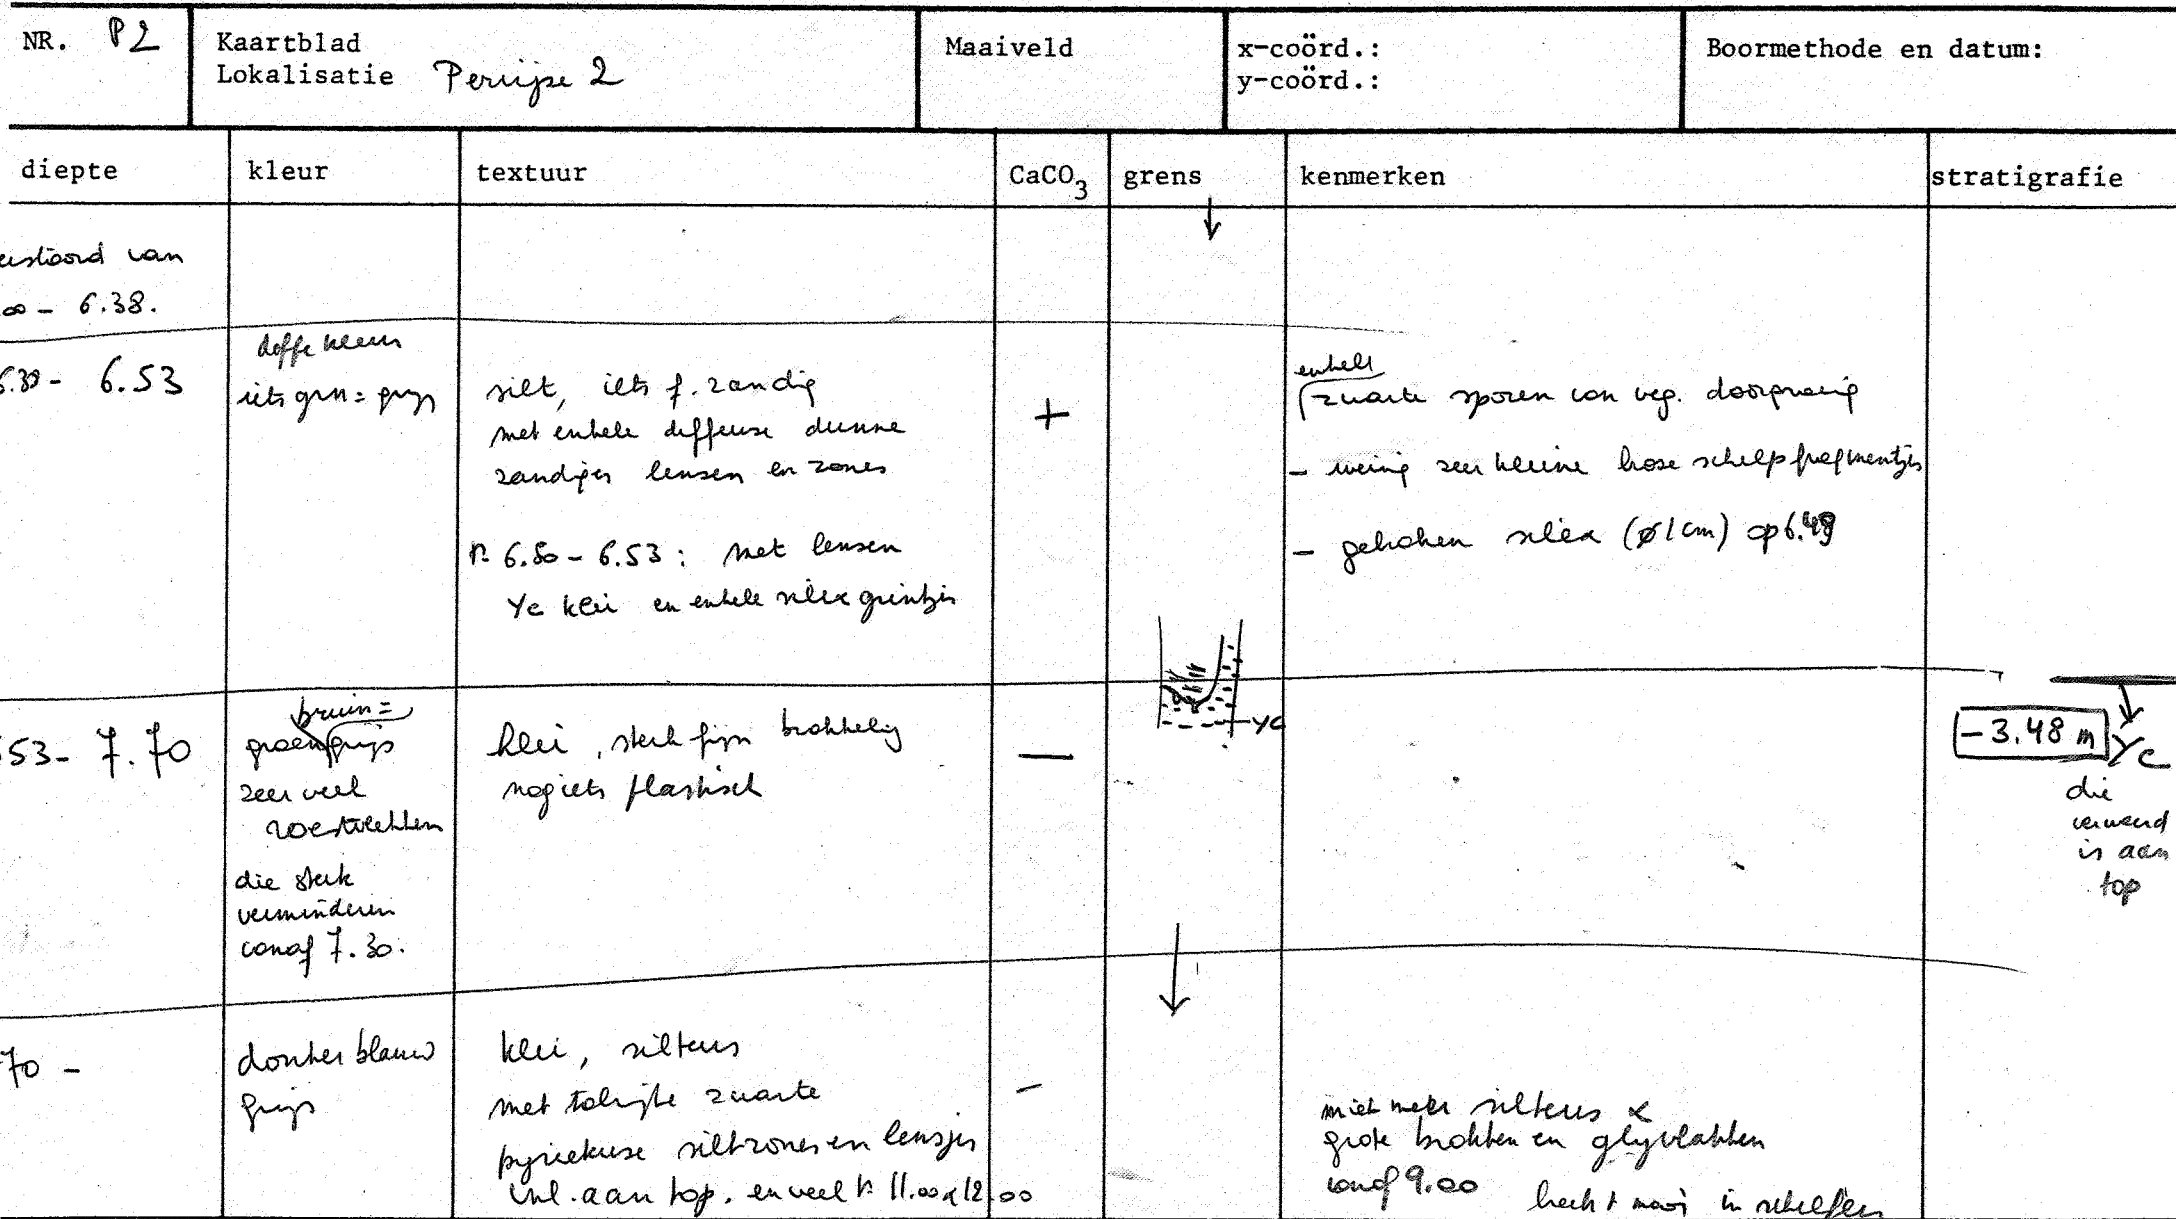 NR. P2
Kaartblad
Lokalisatie Pervijze 2
Maaiveld
x-coörd.:
y-coörd.:
Boormethode en datum:
diepte
kleur
textuur
CaCO3
grens
kenmerken
stratigrafie
van
- 6.38.
- 6.53
doffe kleur
iets grn = grijs
silt, iets f. zandig
met enkele diffuse dunne
zandiges lensen en zones
6.50 - 6.53 : met lensen
Yc klei en enkele silex grintjes
+
enkele
zwarte sporen van veg. doorgroeiing
- weinig zeer kleine losse schelpfragmentjes
- gebroken silex (ø 1 cm) op 6.49
Yc
53 - 7.70
bruin =
groen grijs
zeer veel
roestvlekken
die sterk
verminderen
vanaf 7.30.
klei, sterk fijn brokkelig
nog iets plastisch
—
-3.48 m
Yc
die
verweerd
is aan
top
70 -
donker blauw
grijs
klei, silteus
met talrijke zwarte
pyriteuse siltzones en lensjes
vnl. aan top. en veel 11.00 & 12.00
-
niet meer silteus &
grote brokken en glijvlakken
vanaf 9.00
breekt mooi in schelfers